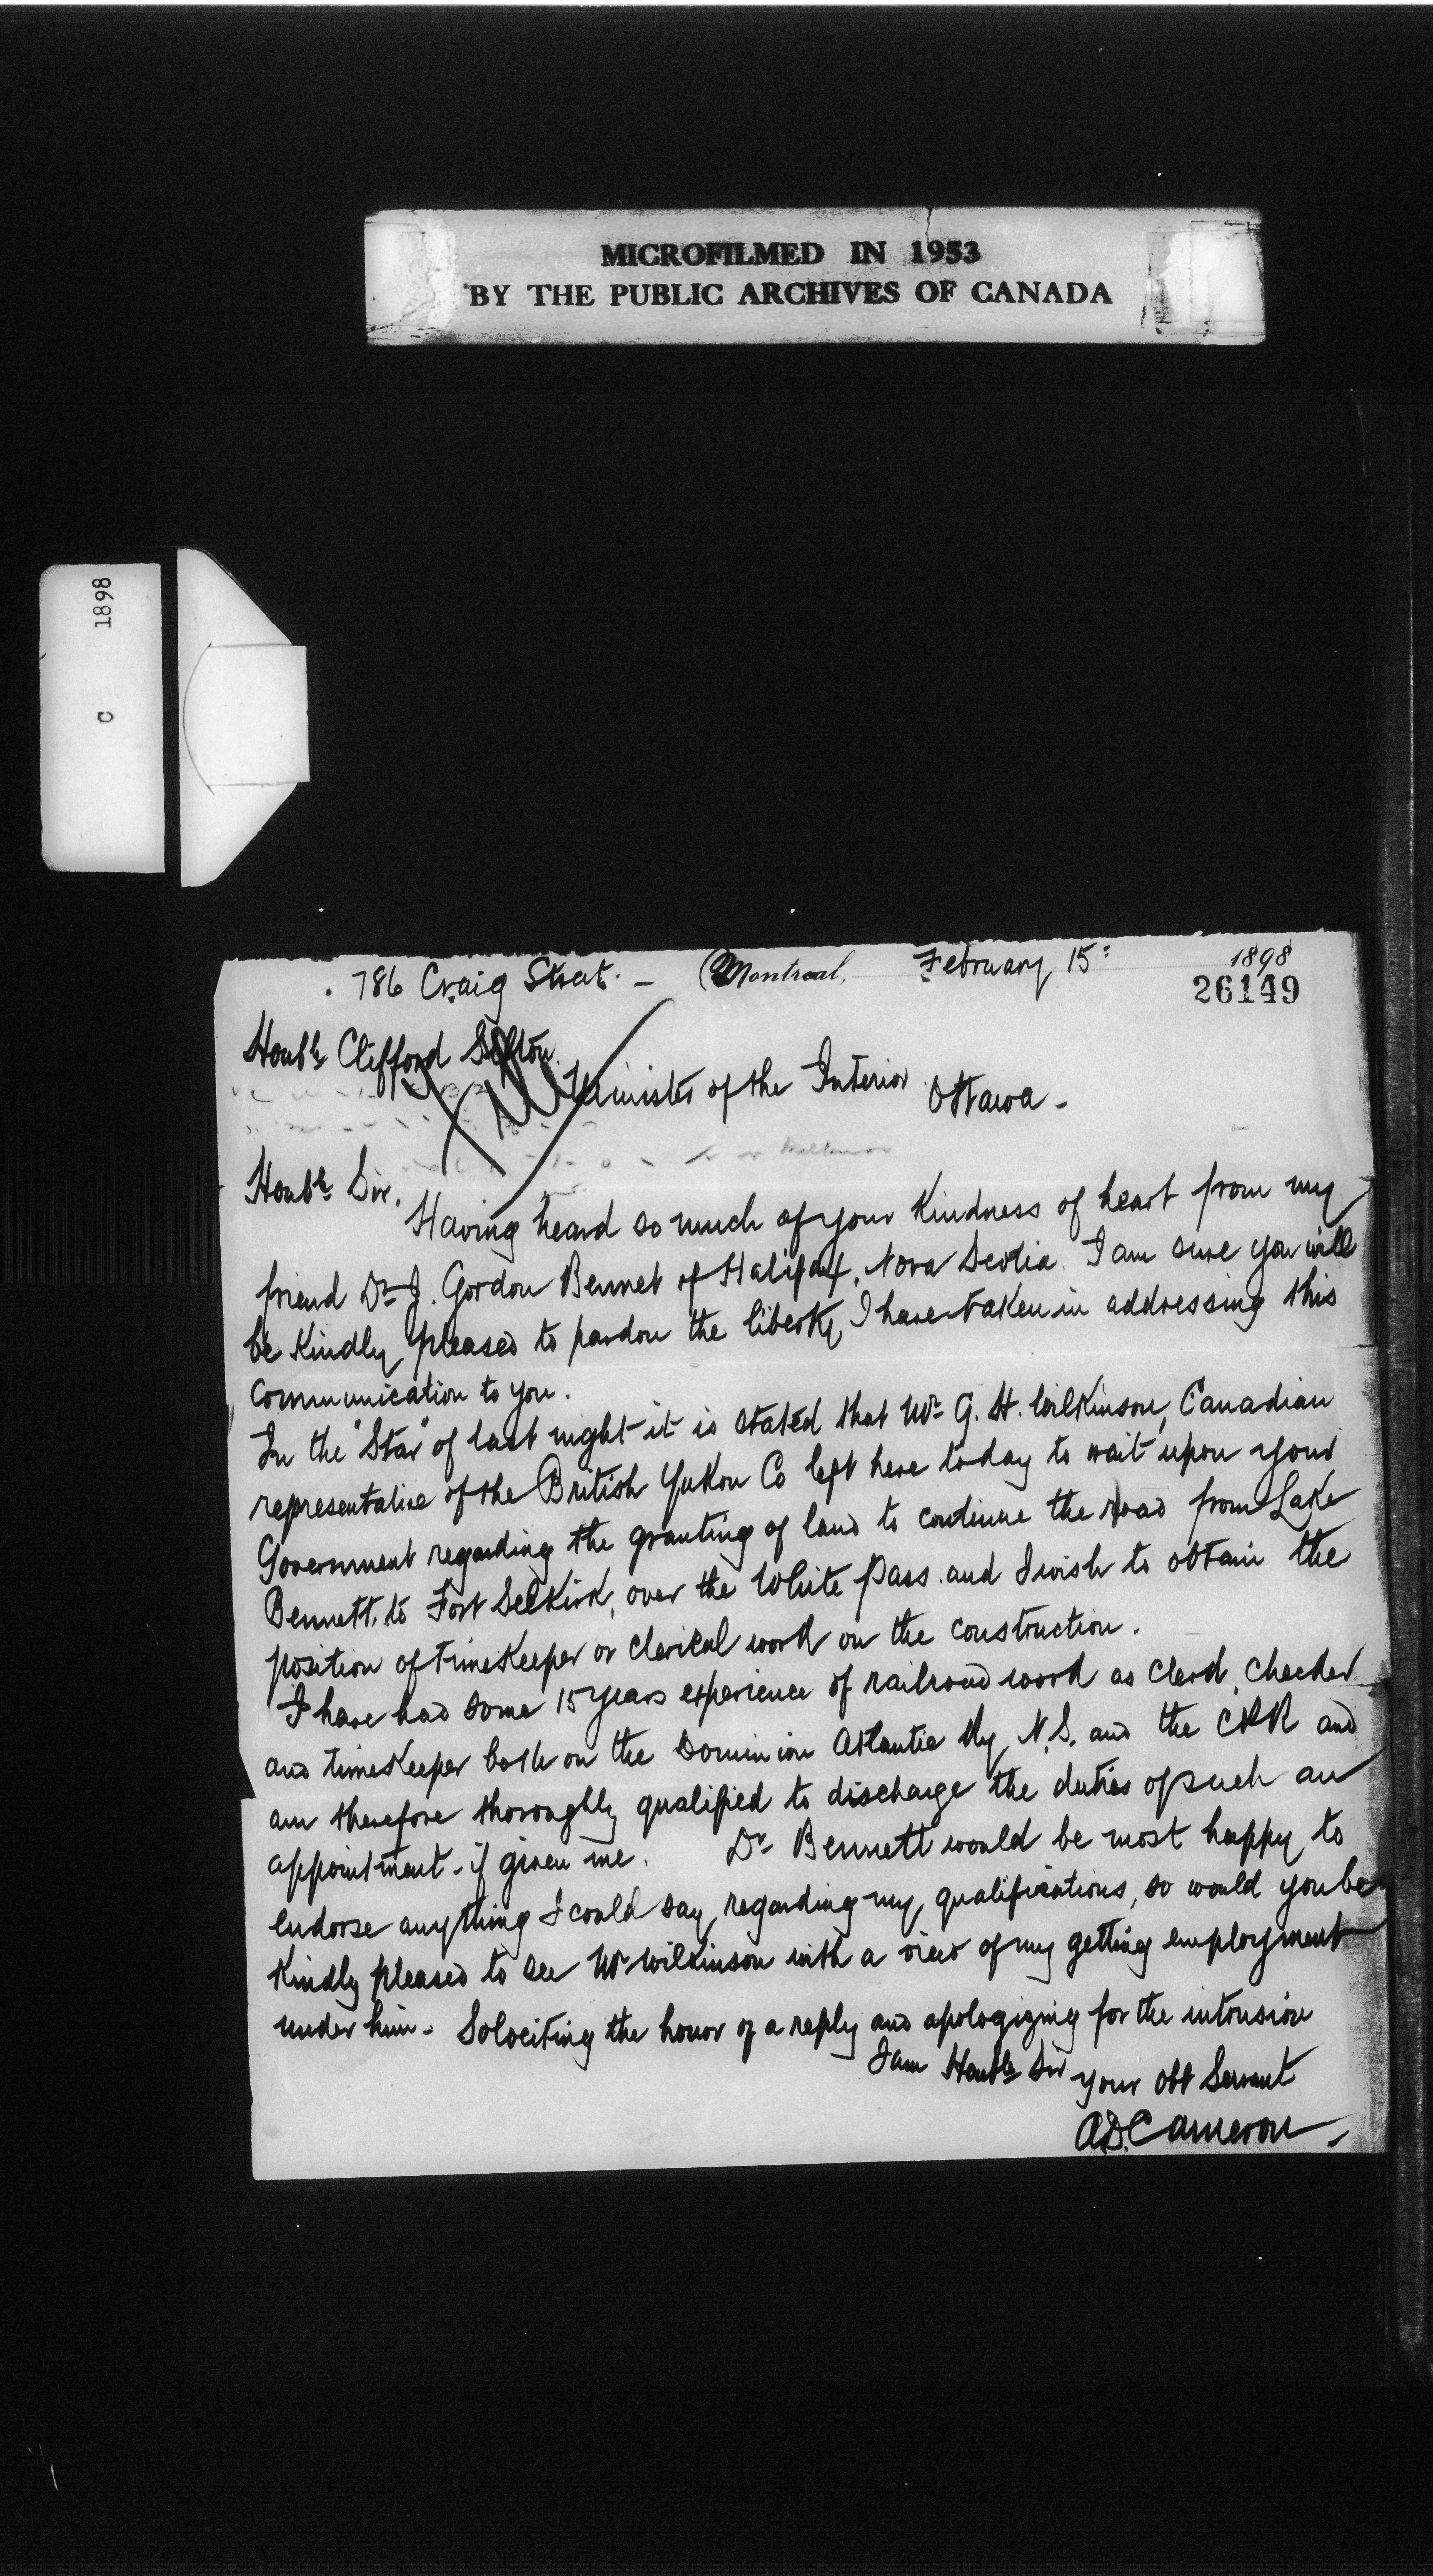 MICROFILMED IN 1953
BY THE PUBLIC ARCHIVES OF CANADA
C 1898
786 Craig Street. - Montreal, February 15: 1898
26149
Honble Clifford Sifton
Minister of the Interior
Ottawa -
Honble Sir.
Having heard so much of your kindness of heart from my
friend Dr J. Gordon Bennet of Halifax, Nova Scotia. I am sure you will
be kindly pleased to pardon the liberty I have taken in addressing this
communication to you.
In the "Star" of last night it is stated that Mr G. H. Wilkinson, Canadian
representative of the British Yukon Co left here today to wait upon your
Government regarding the granting of land to continue the road from Lake
Bennett to Fort Selkirk, over the White Pass and I wish to obtain the
position of timekeeper or clerical work on the construction.
I have had some 15 years experience of railroad work as clerk, checker
and timekeeper both on the Dominion Atlantic Ry, N.S. and the CPR and
am therefore thoroughly qualified to discharge the duties of such an
appointment - if given me. Dr Bennett would be most happy to
endorse anything I could say, regarding my qualifications, so would you be
kindly pleased to see Mr Wilkinson with a view of my getting employment
under him - Solociting the honor of a reply and apologizing for the intrusion
I am Honble Sir
your Obt Servant
A.D. Cameron